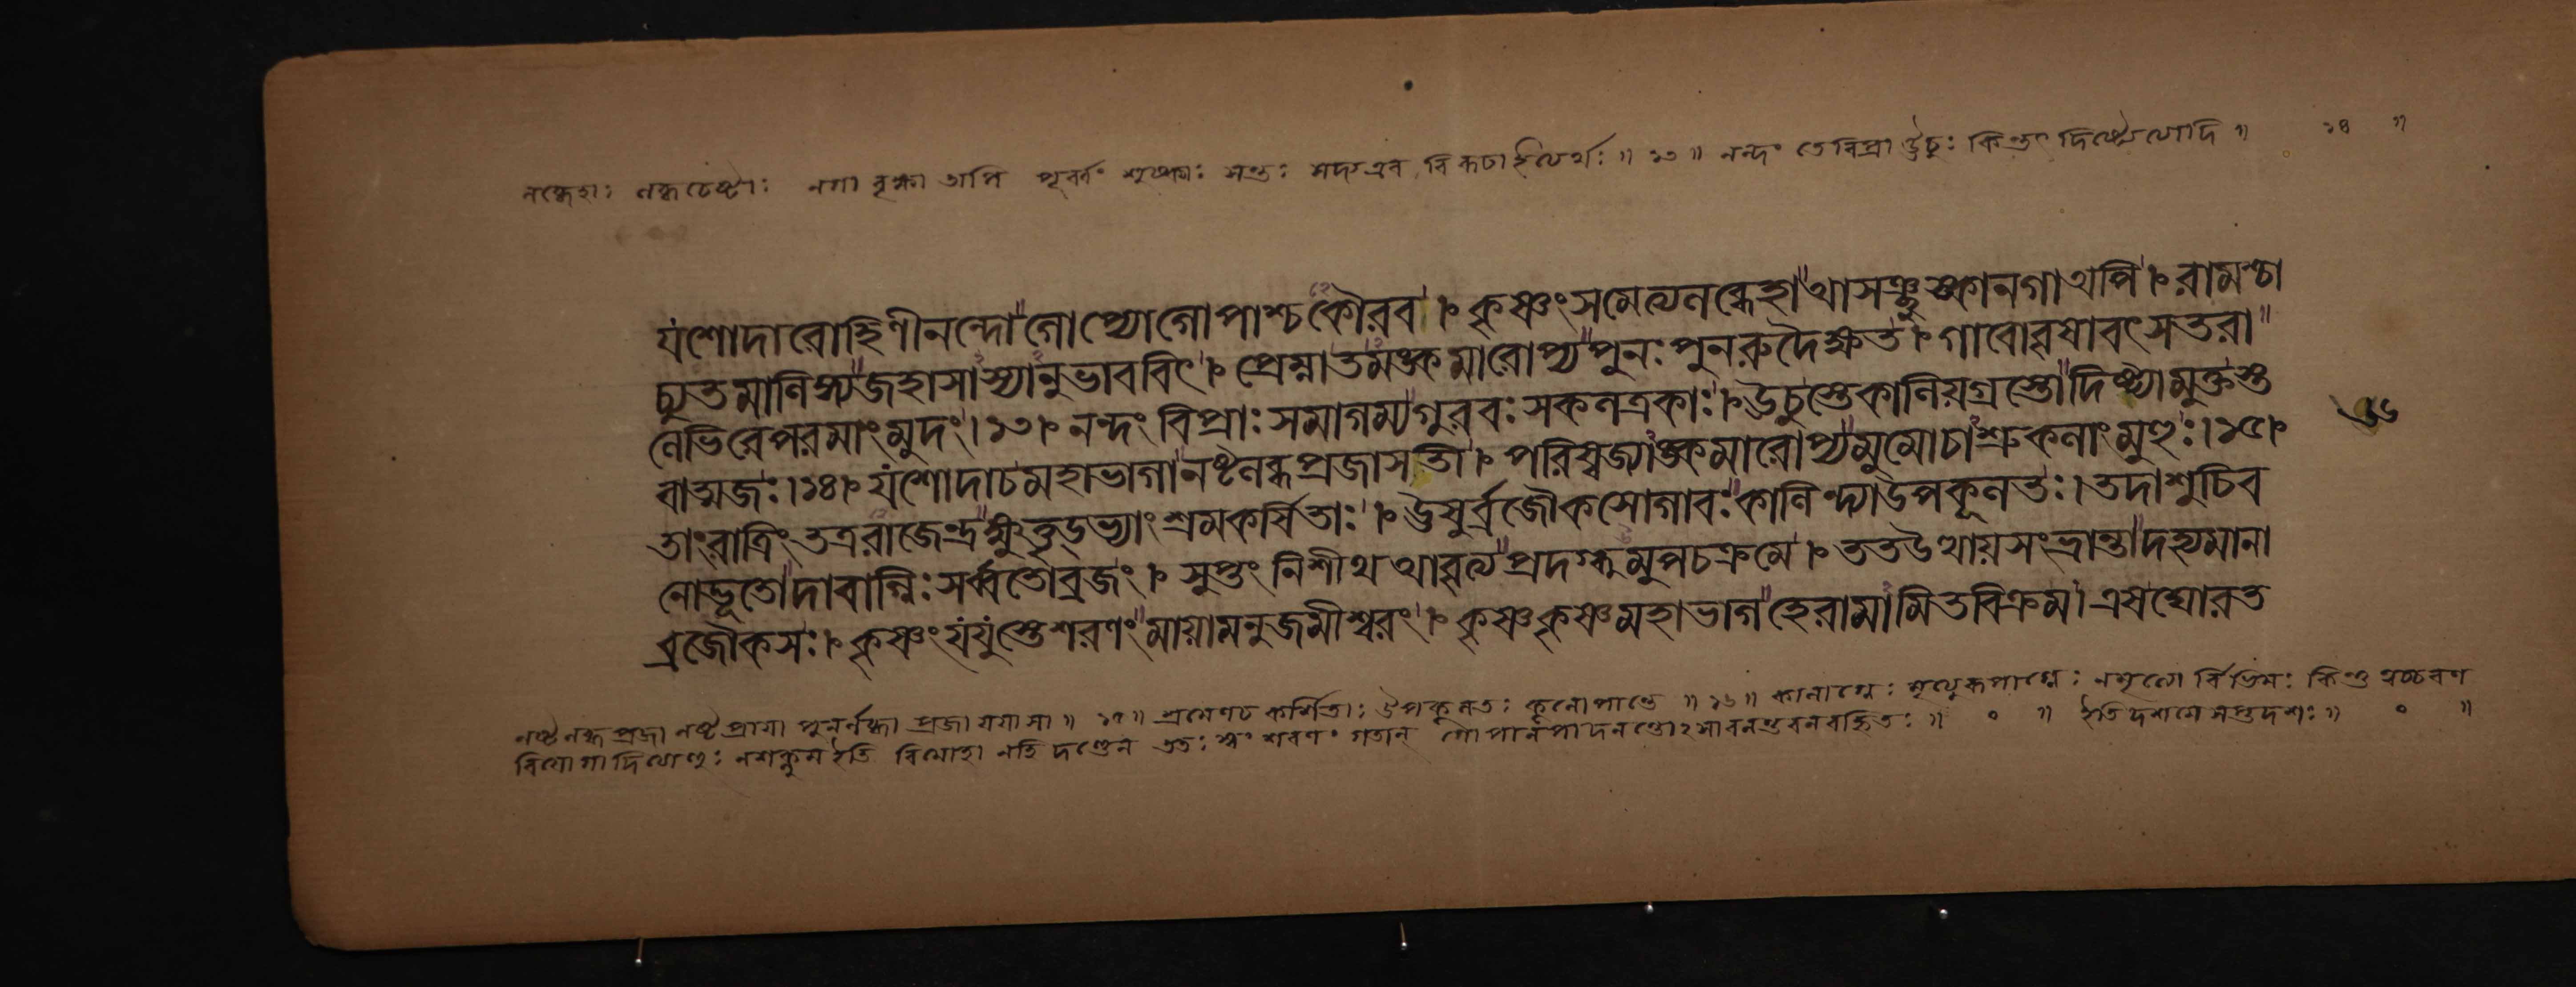 লব্ধেহাঃ লব্ধচেষ্টাঃ নগা বৃক্ষা অপি পূর্ব্বং শুষ্কাঃ সন্তঃ সদ্য এব বিকচা ইত্যর্থঃ ॥ ১৩ ॥ নন্দং তে বিপ্রা ঊচুঃ কিন্তৎ দিষ্ট্যেত্যাদি ॥ ১৪ ॥
যশোদারোহিণীনন্দোগোপ্যোগোপাশ্চকৌরব। কৃষ্ণংসমেত্যলব্ধেহাআসঞ্ছুষ্কানগাঅপি। রামশ্চা
চ্যুতমালিঙ্গ্যজহাসাস্যানুভাববিৎ। প্রেম্নাতমঙ্কমারোপ্যপুনঃপুনরুদৈক্ষত। গাবোবৃষাবৎসতরা
লেভিরেপরমাংমুদং।১৩। নন্দংবিপ্রাঃসমাগম্যগুরবঃসকলত্রকাঃ। ঊচুস্তেকালিয়গ্রস্তোদিষ্ট্যামুক্তস্ত
বাত্মজঃ।১৪। যশোদাচমহাভাগানষ্টলব্ধপ্রজাসতী। পরিষ্বজ্যাঙ্কমারোপ্যমুমোচাশ্রুকলাংমুহুঃ।১৫।
তাংরাত্রিংতত্ররাজেন্দ্রক্ষুত্তৃড্ভ্যাংশ্রমকর্ষিতাঃ। ঊষুর্ব্রজৌকসোগাবঃকালিন্দ্যাউপকূলতঃ। তদাশুচিব
নোদ্ভূতোদাবাগ্নিঃসর্ব্বতোব্রজং। সুপ্তংনিশীথআবৃত্যপ্রদগ্ধুমুপচক্রমে। ততউত্থায়সংভ্রান্তাদহ্যমানা
ব্রজৌকসঃ। কৃষ্ণংযযুস্তেশরণংমায়ামনুজমীশ্বরং। কৃষ্ণকৃষ্ণমহাভাগহেরামামিতবিক্রম। এষঘোরত
৬৬
নষ্টলব্ধপ্রজা নষ্টপ্রায়া পুনর্লব্ধা প্রজা যয়া সা ॥ ১৫ ॥ শ্রমেণচ কর্শিতাঃ উপকূলতঃ কূলোপান্তে ॥ ১৬ ॥ কালাগ্নেঃ মৃত্যুরূপাগ্নেঃ নমৃত্যো র্বিভিমঃ কিন্তু ত্বচ্চরণ
বিয়োগাদিত্যাহুঃ নশক্নুম ইতি দশমে সপ্তদশঃ ॥ ০ ॥